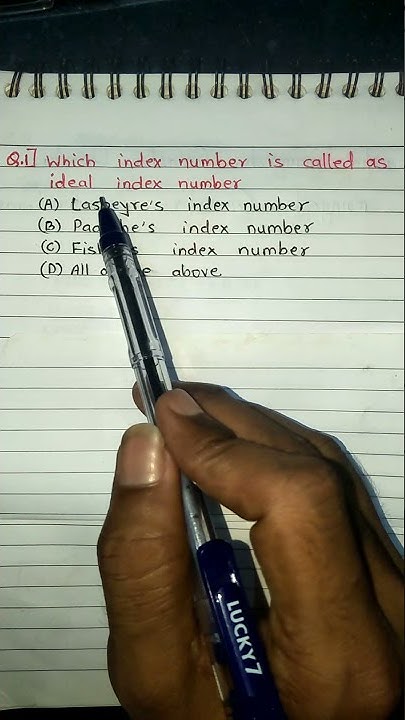 Q.1] Which index number is called as
ideal index number
(A) Laspeyre's index number
(B) Paache's index number
(C) Fisher's index number
(D) All of the above
LUCKY7